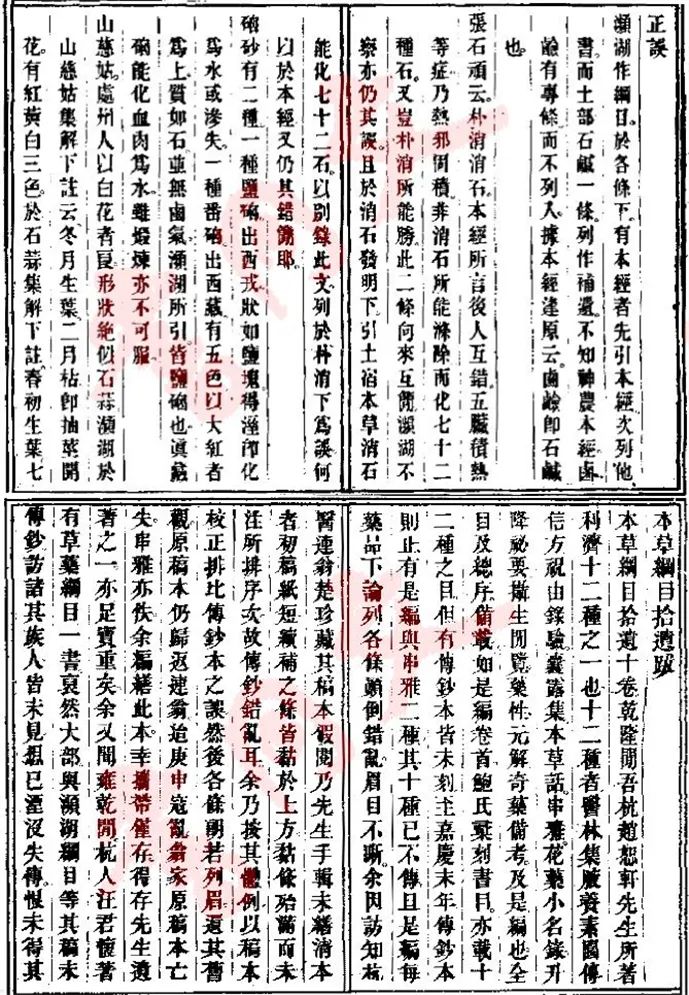 正誤
瀕湖作綱目於各條下有本經者先引本經次列他
書而土部石鹹一條列作補遺不知神農本經鹵
鹼有專條而不列入據本經逢原云鹵鹼即石鹹
也
張石頑云朴消消石本經所言後人互錯五臟積熱
等症乃熱邪固積非消石所能滌除而化七十二
種石又豈朴消所能勝此二條向來互簡瀕湖不
察亦仍其誤且於消石發明下引土宿本草消石
能化七十二石以別錄此文列於朴消下爲誤何
以於本經又仍其錯簡耶
硇砂有二種一種鹽硇出西戎狀如鹽塊得溼即化
爲水或滲失一種番硇出西藏有五色以大紅者
爲上質如石並無鹵氣瀕湖所引皆鹽硇也眞藏
硇能化血肉爲水雖煅煉亦不可服
山慈姑處州人以白花者良形狀絶似石蒜瀕湖於
山慈姑集解下註云冬月生葉二月枯卽抽莖開
花有紅黃白三色於石蒜集解下註春初生葉七
本草綱目拾遺跋
本草綱目拾遺十卷乾隆間吾杭趙恕軒先生所著
利濟十二種之一也十二種者醫林集腋養素園傳
信方祝由錄驗囊露集本草話串雅花藥小名錄升
降祕要攝生閒覽藥性元解奇藥備考及是編也全
目及總序備載如是編卷首鮑氏彙刻書目亦載十
二種之目但有傳鈔本皆未刻至嘉慶末年傳鈔本
則止有是編與串雅二種其十種已不傳且是編每
藥品下論列各條顚倒錯亂眉目不晰余因訪知杭
醫連翁楚珍藏其稿本假閱乃先生手輯未繕清本
者初稿紙短續補之條皆黏於上方黏條殆滿而未
注所排序次故傳鈔錯亂耳余乃按其體例以稿本
校正排比傳鈔本之誤然後各條朗若列眉還其舊
觀原稿本仍歸返連翁迨庚申寇亂翁家原稿本亡
失串雅亦佚余編繕此本幸攜帶僅存得存先生遺
著之一亦足寶重矣余又聞雍乾間杭人汪君懷著
有草藥綱目一書裒然大部與瀕湖綱目等其稿未
傳鈔訪諸其族人皆未見想已湮沒失傳惟未得其